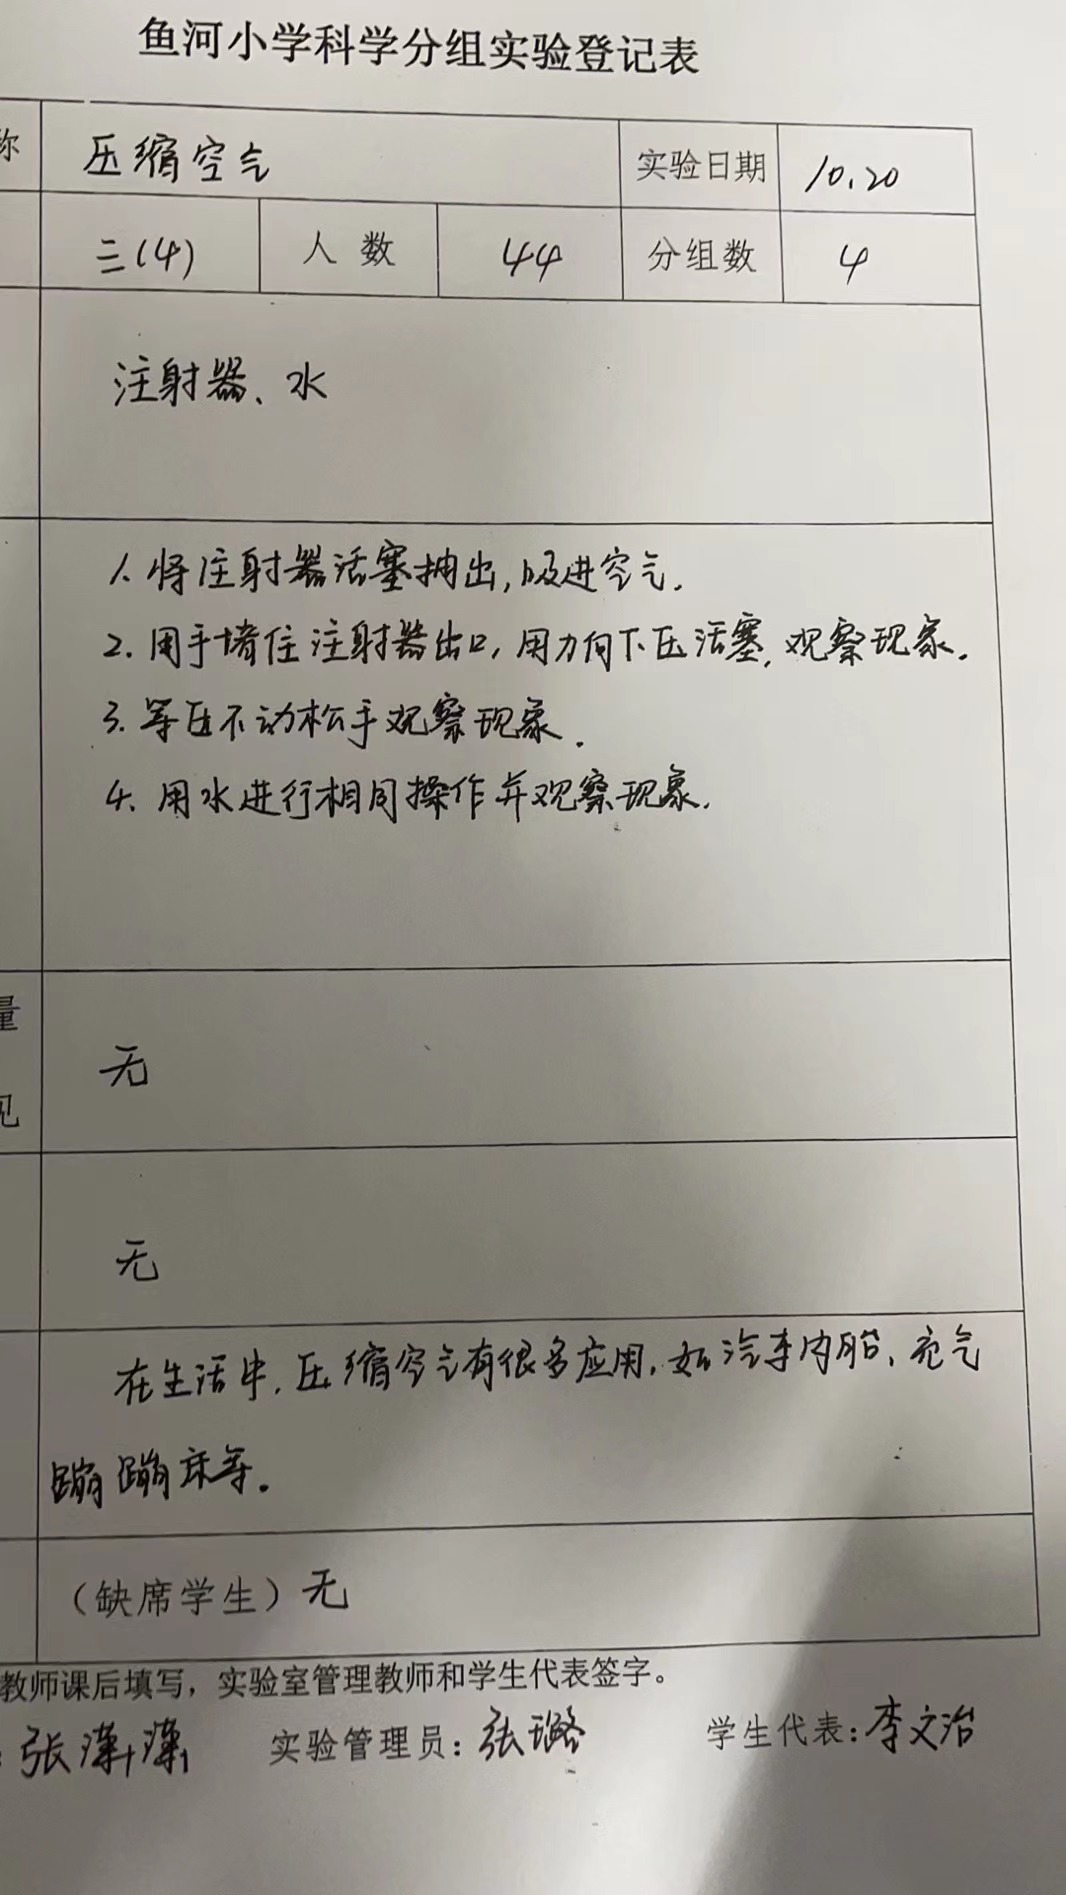 鱼河小学科学分组实验登记表
称 压缩空气 实验日期 10.20
三(4) 人数 44 分组数 4
注射器、水
1.将注射器活塞抽出,吸进空气.
2.用手堵住注射器出口,用力向下压活塞,观察现象.
3.等压不动松手观察现象.
4.用水进行相同操作并观察现象.
量
见
无
无
在生活中,压缩空气有很多应用,如汽车内胎、充气
蹦蹦床等.
(缺席学生)无
教师课后填写，实验室管理教师和学生代表签字。
张 实验管理员:张璐 学生代表:李文治